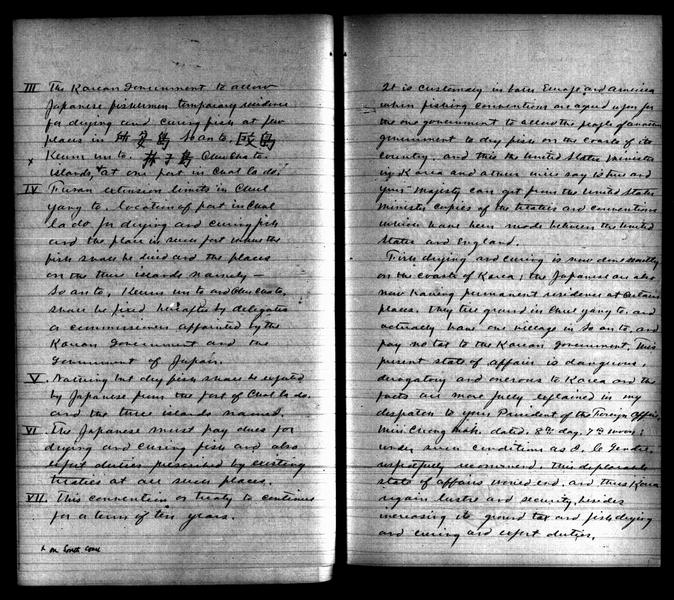 III The Korean Government to allow
Japanese fishermen temporary residence
for drying and curing fish at few
places in 島 So an to. 島
Keum un to. 島 Chu Cha to.
islands, & at one port in Chul la do.
IV Fusan extension limits in Chul
yang to. location of port in Chul
la do for drying and curing fish
and the place in such port where the
fish shall be dried and the places
on the three islands namely —
So an to, Keum un to and Chu Cha to.
shall be fixed hereafter by delegates
or commissioners appointed by the
Korean Government and the
Government of Japan.
V. Nothing but dry fish shall be exported
by Japanese from the port of Chul la do.
and the three islands named.
VI. The Japanese must pay dues for
drying and curing fish and also
export duties prescribed by existing
treaties at all such places.
VII. This convention or treaty to continue
for a term of ten years.
x on South Coast
It is customary in both Europe and America
when fishing conventions are agreed upon for
the one government to allow the people of another
government to dry fish on the coasts of its
country, and this the United States Minister
in Korea and others will say is true and
your Majesty can get from the United States
Minister copies of the treaties and conventions
which have been made between the United
States and England.
Fish drying and curing is now done secretly
on the coasts of Korea; the Japanese are also
now having permanent residence at certain
places. They till ground in Chul yang to. and
actually have one village in So an to. and
pay no tax to the Korean Government. This
present state of affairs is dangerous,
derogatory and onerous to Korea and the
facts are more fully explained in my
despatch to your President of the Foreign Office
Min Chong Mok. dated. 8th day. 7th moon;
under such conditions as C. Le Gendre,
respectfully recommend, this deplorable
state of affairs would end. and thus Korea
regain lustre and security, besides
increasing its ground tax and fish drying
and curing and export duties.